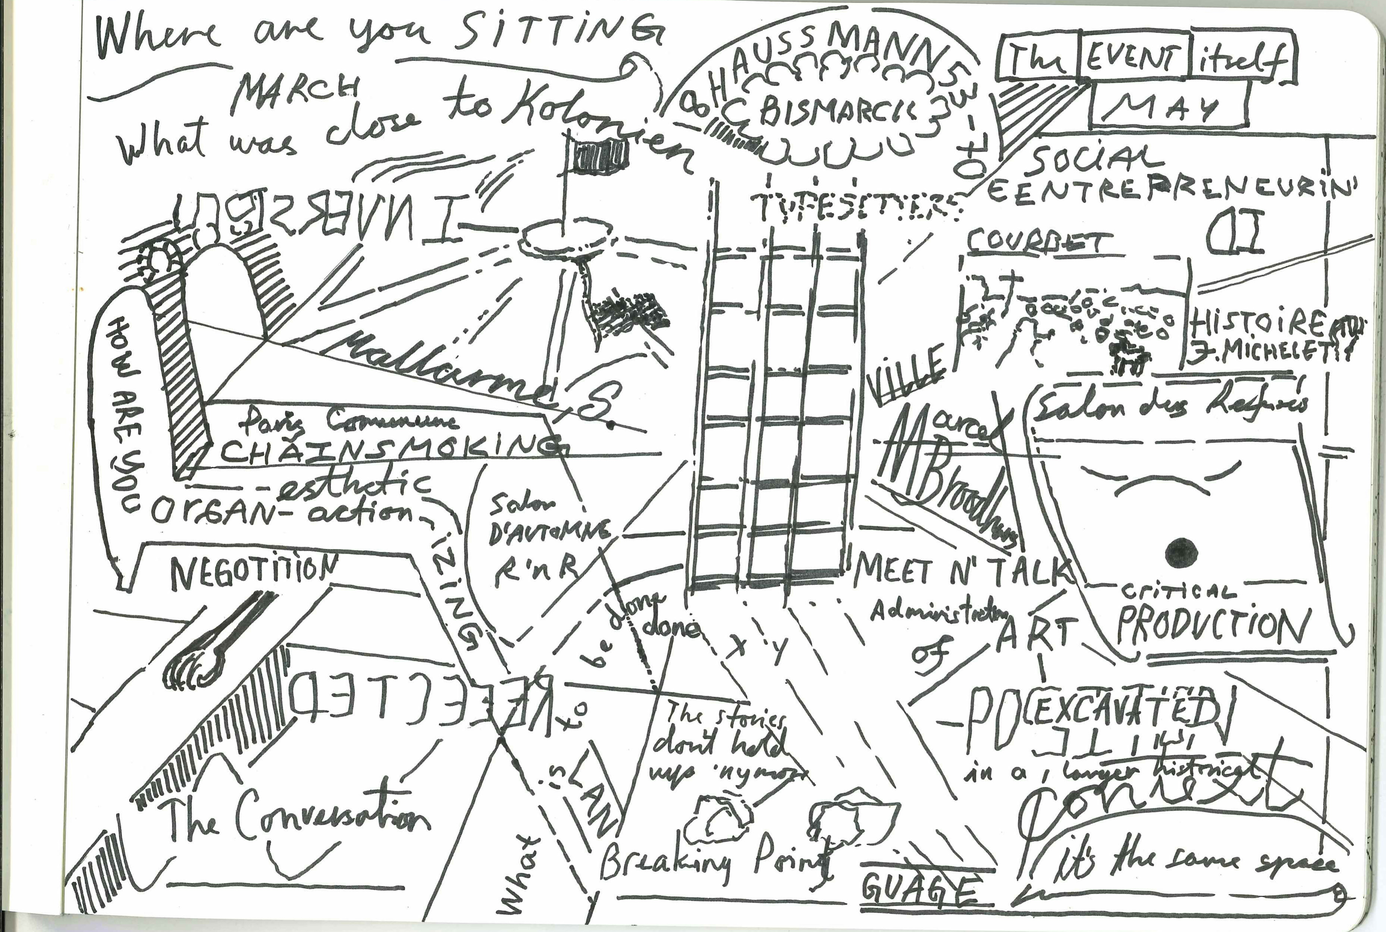 Where are you SITTING
MARCH
What was close to Kolonien
HAUSSMANN 53-70
BISMARCK
The EVENT itself
MAY
SOCIAL
EENTREPRENEURIN'
TYPESETTERS
COURBET
HISTOIRE
J. MICHELET
VILLE
Marcel
Broodthaers
Salon des Refusés
HOW ARE YOU
Mallarmé S.
Paris Commune
CHAINSMOKING
esthetic
ORGAN-action
IZING
NEGOTITION
Salon
D'AUTOMNE
R'n R
MEET N' TALK
Administration
of
ART
CRITICAL
PRODUCTION
REFLECTED
What is to be done
done
X Y
The stories
don't hold
up 'nymore
LAN
GUAGE
Breaking Point
The Conversation
EXCAVATED
in a larger historical
Context
it's the same space